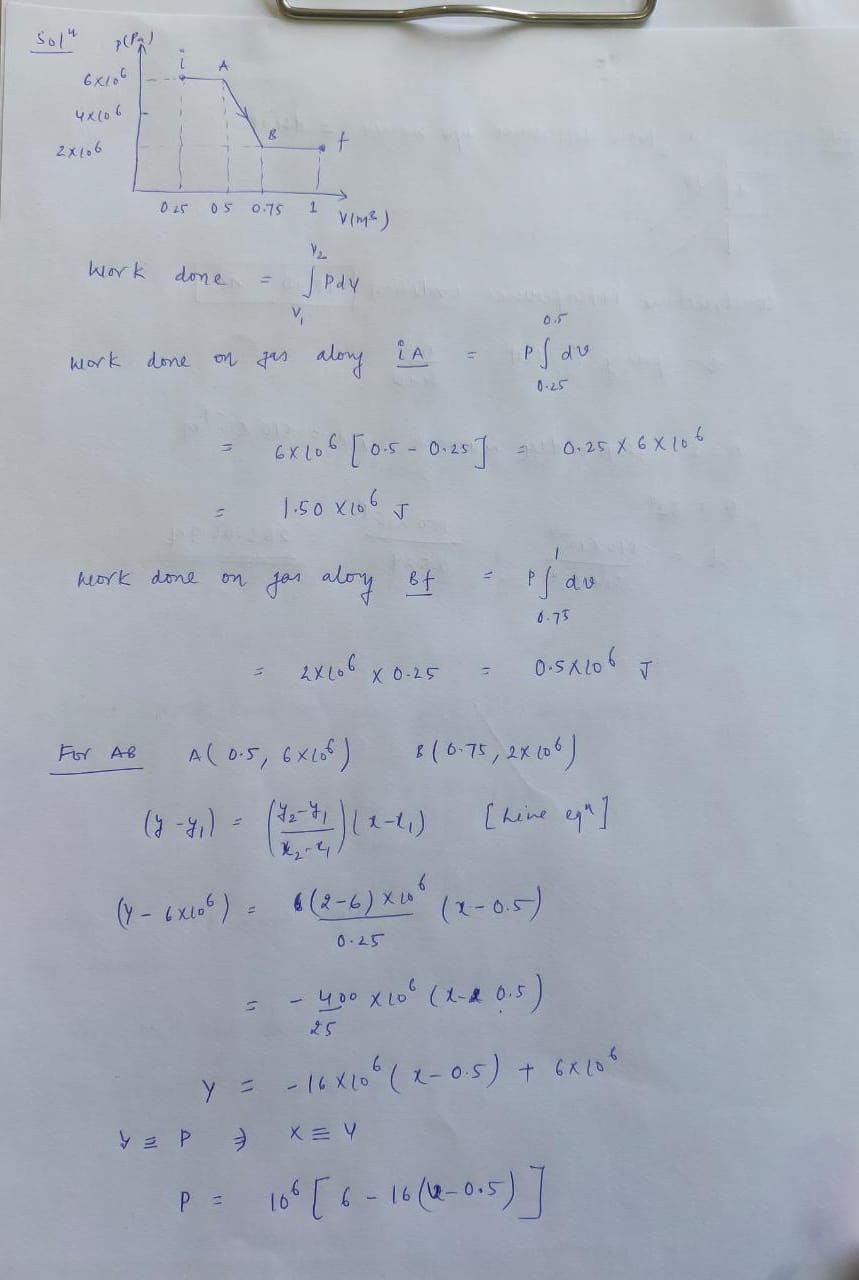 Solⁿ
P(Pa)
i
A
6×10⁶
4×10⁶
B
f
2×10⁶
0.25 0.5 0.75 1
V(m³)
Work done = ∫_{V₁}^{V₂} PdV
Work done on gas along iA = P∫_{0.25}^{0.5} dv
= 6×10⁶ [0.5 - 0.25] = 0.25 × 6×10⁶
= 1.50 ×10⁶ J
Work done on gas along Bf = P∫_{0.75}^{1} dv
= 2×10⁶ × 0.25 = 0.5×10⁶ J
For AB A(0.5, 6×10⁶) B(0.75, 2×10⁶)
(y - y₁) = ((y₂-y₁)/(x₂-x₁)) (x-x₁) [Line eqⁿ]
(y - 6×10⁶) = ((2-6)×10⁶)/0.25 (x-0.5)
= - 400/25 ×10⁶ (x- 0.5)
y = -16×10⁶ (x-0.5) + 6×10⁶
y ≡ P ⇒ x ≡ V
P = 10⁶ [6 - 16(V-0.5)]